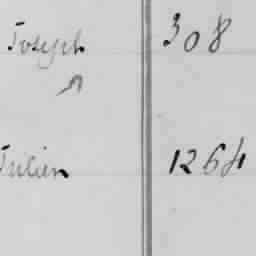 Joseph 308
Julien 1264